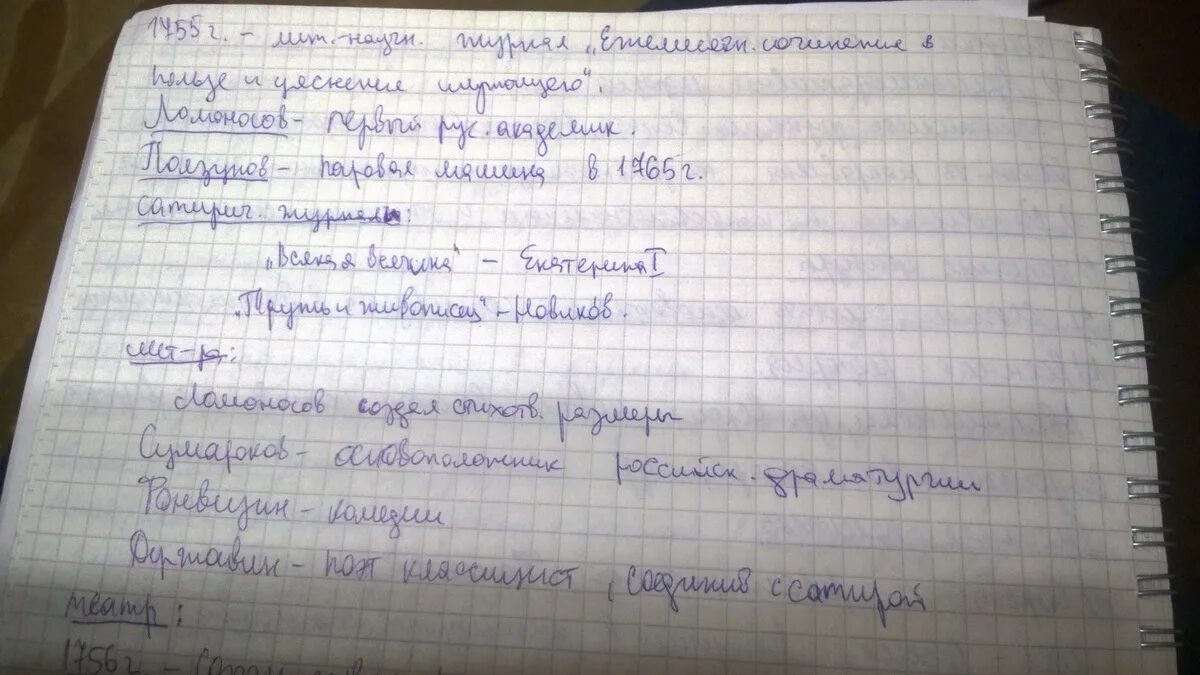 1755 г. – лит.-научн. журнал „Ежемесячн. сочинение в
пользе и увеселение
Ломоносов – первый рус. академик.
Ползунов – паровая машина в 1765 г.
сатирич. журналы:
„Всякая всячина" – Екатерина I
„Трутень и живописец" – Новиков.
лит-ра:
Ломоносов создал стихотв. размеры
Сумароков – основоположник российск. драматургии
Фонвизин – комедии
Державин – поэт классицист, соединив с сатирой
театр:
1756 г. –